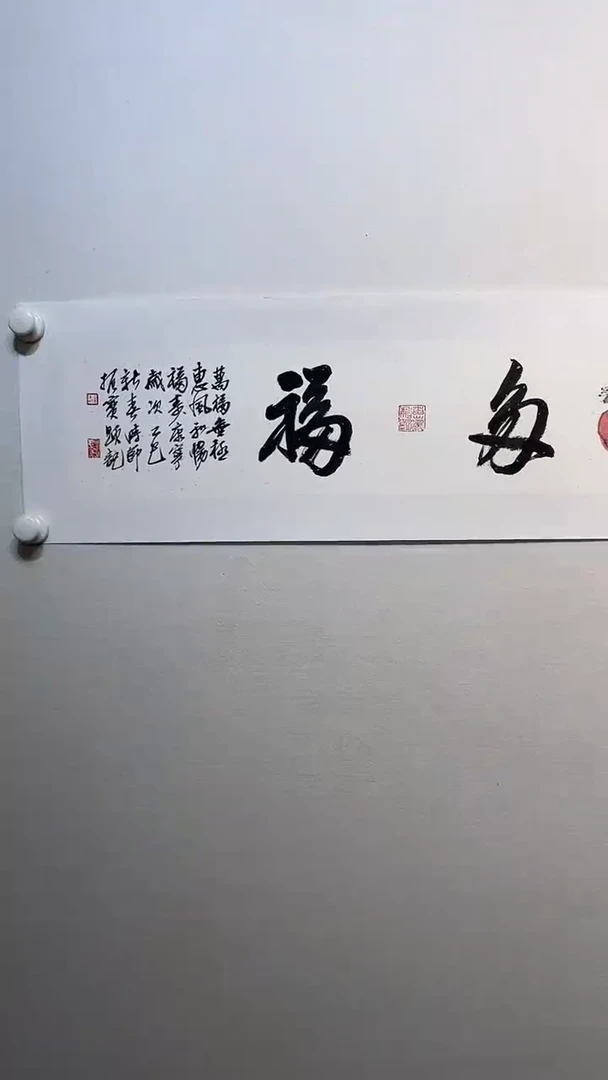 多
福
萬福無極
惠風和暢
福壽康寧
歲次乙巳
新春時節
振寶題記